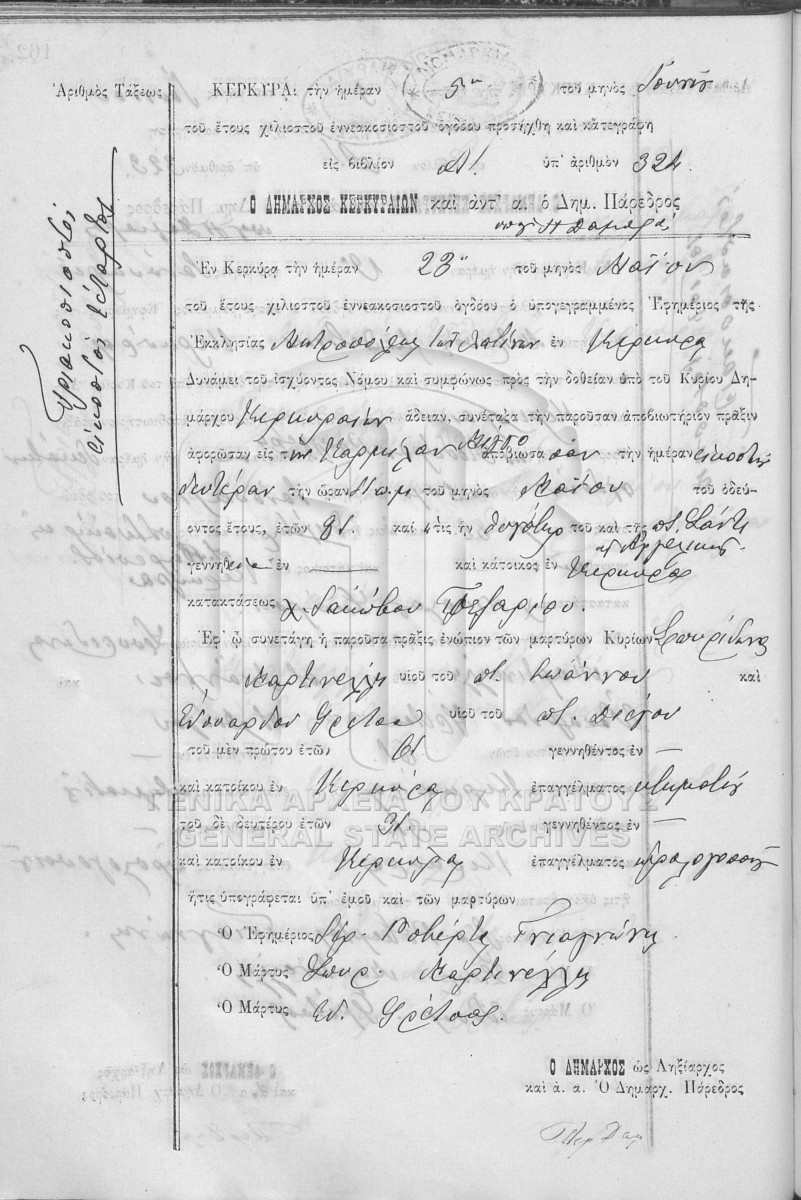 Ἀριθμὸς Τάξεως
Τριακοσιοστὸν
εἰκοστὸν τέταρτον
ΚΕΡΚΥΡΑι τὴν ἡμέραν 5ην τοῦ μηνὸς Ἰουνίου
τοῦ ἔτους χιλιοστοῦ ἐννεακοσιοστοῦ ὀγδόου προσήχθη καὶ κατεγράφη
εἰς βιβλίον ὑπ' ἀριθμὸν 324
Ὁ ΔΗΜΑΡΧΟΣ ΚΕΡΚΥΡΑΙΩΝ καὶ ἀντ' α. ὁ Δημ. Πάρεδρος
Ἐν Κερκύρᾳ τὴν ἡμέραν 23ην τοῦ μηνὸς Μαΐου
τοῦ ἔτους χιλιοστοῦ ἐννεακοσιοστοῦ ὀγδόου ὁ ὑπογεγραμμένος Ἐφημέριος τῆς
Ἐκκλησίας Μητροπόλεως τῶν Λατίνων ἐν Κερκύρᾳ
Δυνάμει τοῦ ἰσχύοντος Νόμου καὶ συμφώνως πρὸς τὴν δοθεῖσαν ὑπὸ τοῦ Κυρίου Δη-
μάρχου Κερκυραίων ἄδειαν, συνέταξα τὴν παροῦσαν ἀποβιωτήριον πρᾶξιν
ἀφορῶσαν εἰς τὴν ἀποβιώσασαν τὴν ἡμέραν εἰκοστὴν
δευτέραν τὴν ὥραν 11 π.μ. τοῦ μηνὸς Μαΐου τοῦ ὁδεύ-
οντος ἔτους, ἐτῶν 81 καὶ ἥτις ἦν θυγάτηρ τοῦ καὶ τῆς π. Σάντε
π. Ἀγγελικῆς
γεννηθεῖσα ἐν — καὶ κάτοικος ἐν Κερκύρᾳ
καταστάσεως χ. Ἰακώβου
Ἐφ' ᾧ συνετάγη ἡ παροῦσα πρᾶξις ἐνώπιον τῶν μαρτύρων Κυρίων Σπυρίδωνος
Μαρτινέλλη υἱοῦ τοῦ π. Ἰωάννου καὶ
Ἐδουάρδου υἱοῦ τοῦ π.
τοῦ μὲν πρώτου ἐτῶν 61 γεννηθέντος ἐν —
καὶ κατοίκου ἐν Κερκύρᾳ ἐπαγγέλματος κτηματίου
τοῦ δὲ δευτέρου ἐτῶν 31 γεννηθέντος ἐν —
καὶ κατοίκου ἐν Κερκύρᾳ ἐπαγγέλματος ὡρολογοποιοῦ
ἥτις ὑπογράφεται ὑπ' ἐμοῦ καὶ τῶν μαρτύρων
Ὁ Ἐφημέριος Ροβέρτος
Ὁ Μάρτυς Σπυρ. Μαρτινέλλης
Ὁ Μάρτυς Ἐδ.
Ὁ ΔΗΜΑΡΧΟΣ ὡς Ληξίαρχος
καὶ ἀ. α. Ὁ Δημαρχ. Πάρεδρος
ΓΕΝΙΚΑ ΑΡΧΕΙΑ ΤΟΥ ΚΡΑΤΟΥΣ
GENERAL STATE ARCHIVES